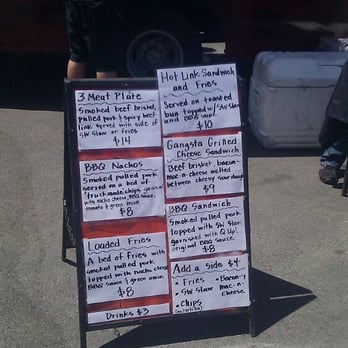 3 Meat Plate
Smoked beef brisket,
pulled pork & spicy beef
link served with side of
SW slaw or fries
$14
BBQ Nachos
Smoked pulled pork
served on a bed of
truckmade chips
with nacho cheese, BBQ sauce,
tomato & green onion
$8
Loaded Fries
A bed of fries with
smoked pulled pork
topped with nacho cheese
BBQ sauce & green onion
$8
Drinks $3
Hot Link Sandwich
and Fries
Served on toasted
bun topped w/ SW slaw
and BBQ sauce
$10
Gangsta Grilled
Cheese Sandwich
Beef brisket, bacon-
mac-n-cheese melted
between cheesy sourdough
$9
BBQ Sandwich
Smoked pulled pork
topped with SW slaw
garnished with Q Up!
original BBQ sauce
$8
Add a side $4
• Fries
• SW slaw
• Chips
• Bacon-y
mac-n-
cheese